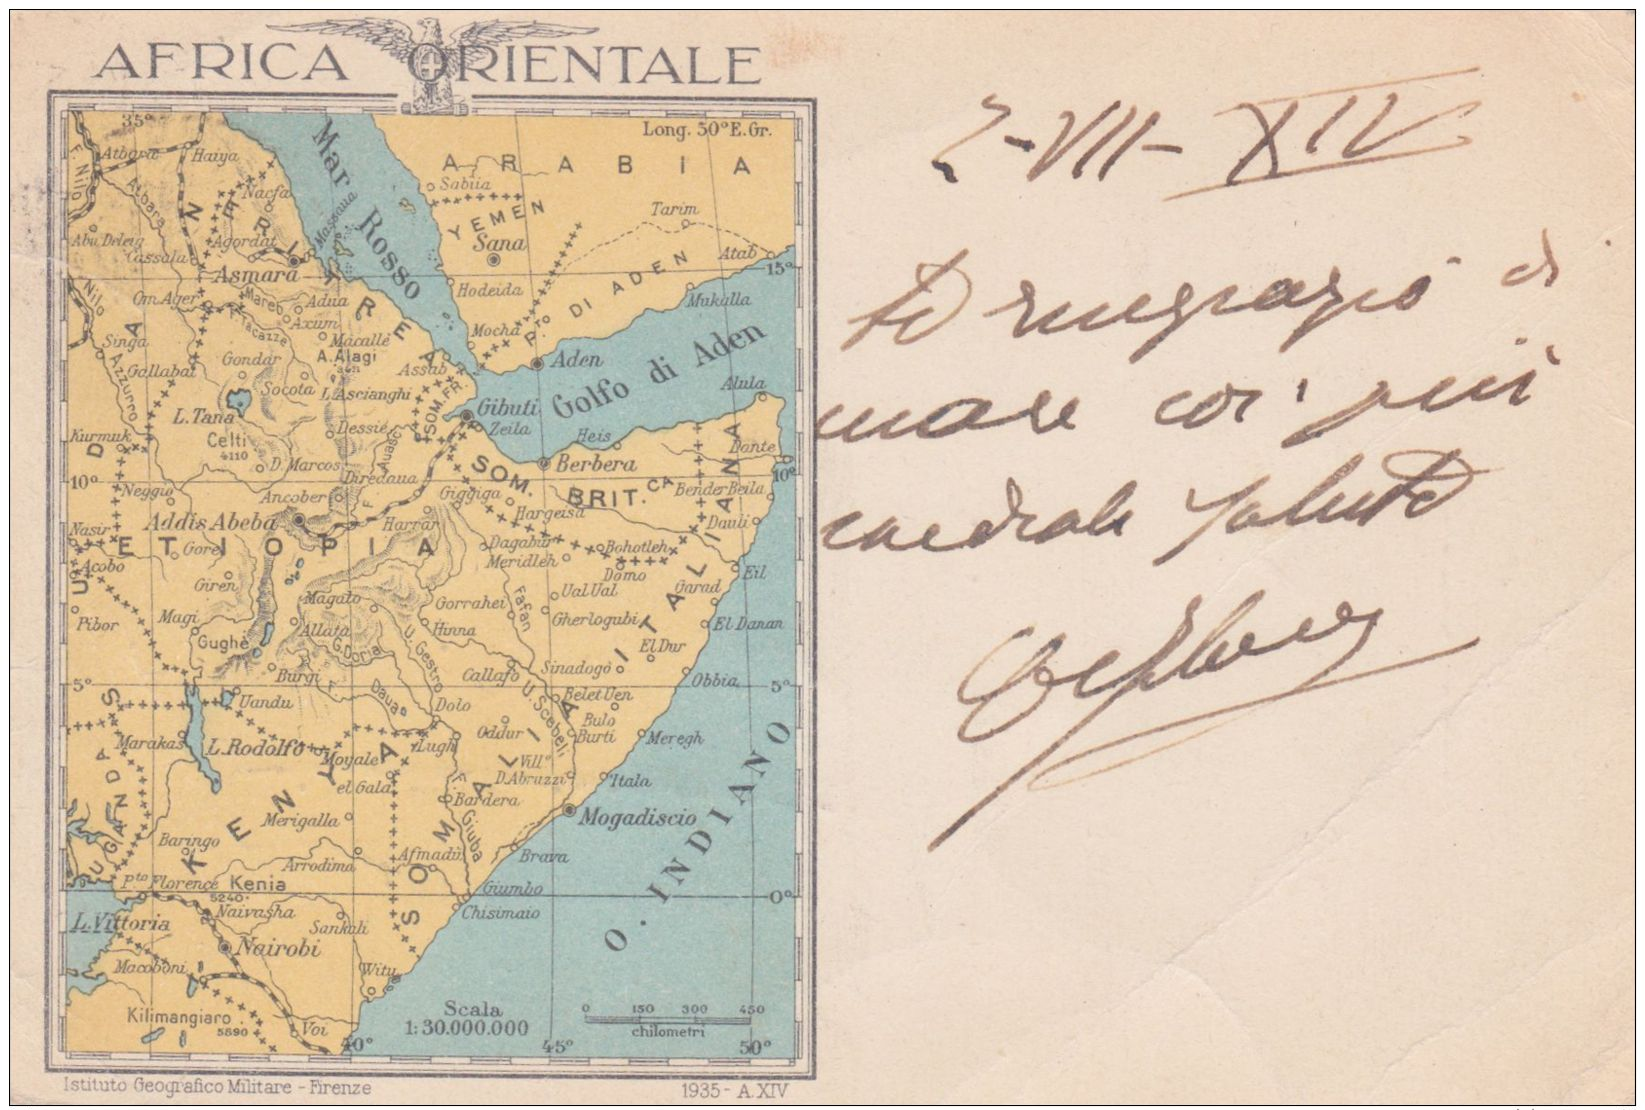 AFRICA ORIENTALE
35°
Long. 50° E. Gr.
Atbara
Haiya
F. Nilo
Mar Rosso
ARABIA
Sabiia
Nacfa
Atbara
Massaua
YEMEN
Tarim
Abu Deleig
Agordat
ERITREA
Sana
Cassala
Asmara
Atab
15°
Hodeida
P.to DI ADEN
Mukalla
Nilo
Om Ager
Mareb
Adua
F. Tacazze
Axum
Mocha
Singa
Macallè
Gondar
A. Alagi
Golfo di Aden
Gallabat
Assab
Aden
Azzurro
Socota
L. Ascianghi
SOM. FR.
Alula
L. Tana
Gibuti
Zeila
Celti
4110
Dessiè
Heis
Kurmuk
Dante
D. Marcos
Auasc
SOM. BRIT.CA
Berbera
10°
10°
Neggio
Diredaua
Ancober
Giggiga
Bender Beila
Addis Abeba
F.
Harrar
Hargeisa
Dauli
Nasir
ETIOPIA
Gore
Dagabur
Bohotleh
Acobo
Meridleh
Domo
Eil
Giren
Garad
Ual Ual
Magato
Gorrahei
Fafan
Gherlogubi
Pibor
Magi
Allata
Hinna
El Danan
Gughè
G. Doria
U. Gestro
El Dur
Burgi
Callafo
Sinadogò
Obbia
5°
5°
F. Daua
U. Scebeli
Belet Uen
Uandu
Dolo
Bulo Burti
Oddur
Marakas
L. Rodolfo
Lugh
Meregh
Moyale
Vill° D. Abruzzi
SOMALIA ITALIANA
el Gala
Itala
UGANDA
KENYA
Bardera
Merigalla
Mogadiscio
O. INDIANO
Baringo
Giuba
Arrodima
Afmadù
Brava
P.to Florence
Kenia
5240
Giumbo
0°
Naivasha
Chisimaio
L. Vittoria
Sankuli
Nairobi
Macoboni
Witu
Kilimangiaro
5890
Voi
Scala
1:30.000.000
0 150 300 450
chilometri
40° 45° 50°
Istituto Geografico Militare - Firenze
1935 - A. XIV
2-VII-XIV
Te ringrazio e